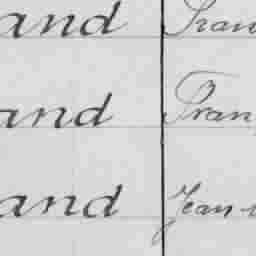 and Fran
and Fran
and Jean